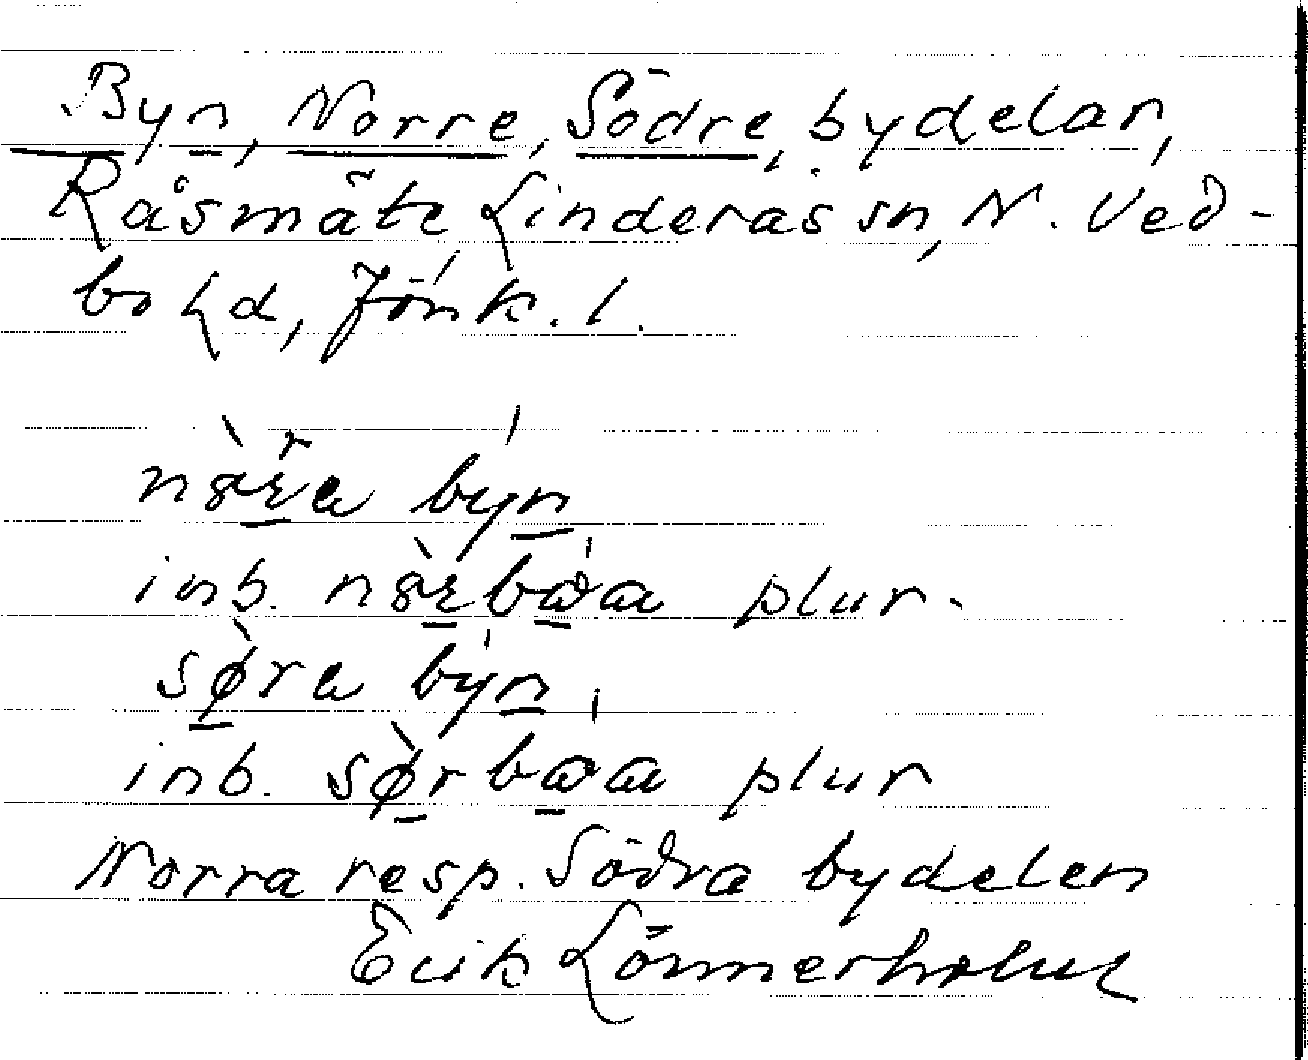 Byn, Norre, Södre, bydelar,
Råsmäte, Linderås sn, N. Ved-
bo hd, Jönk. l.
byn
inb. plur.
søra byn,
inb. plur
Norra resp. Södra bydelen
Erik Lönnerholm